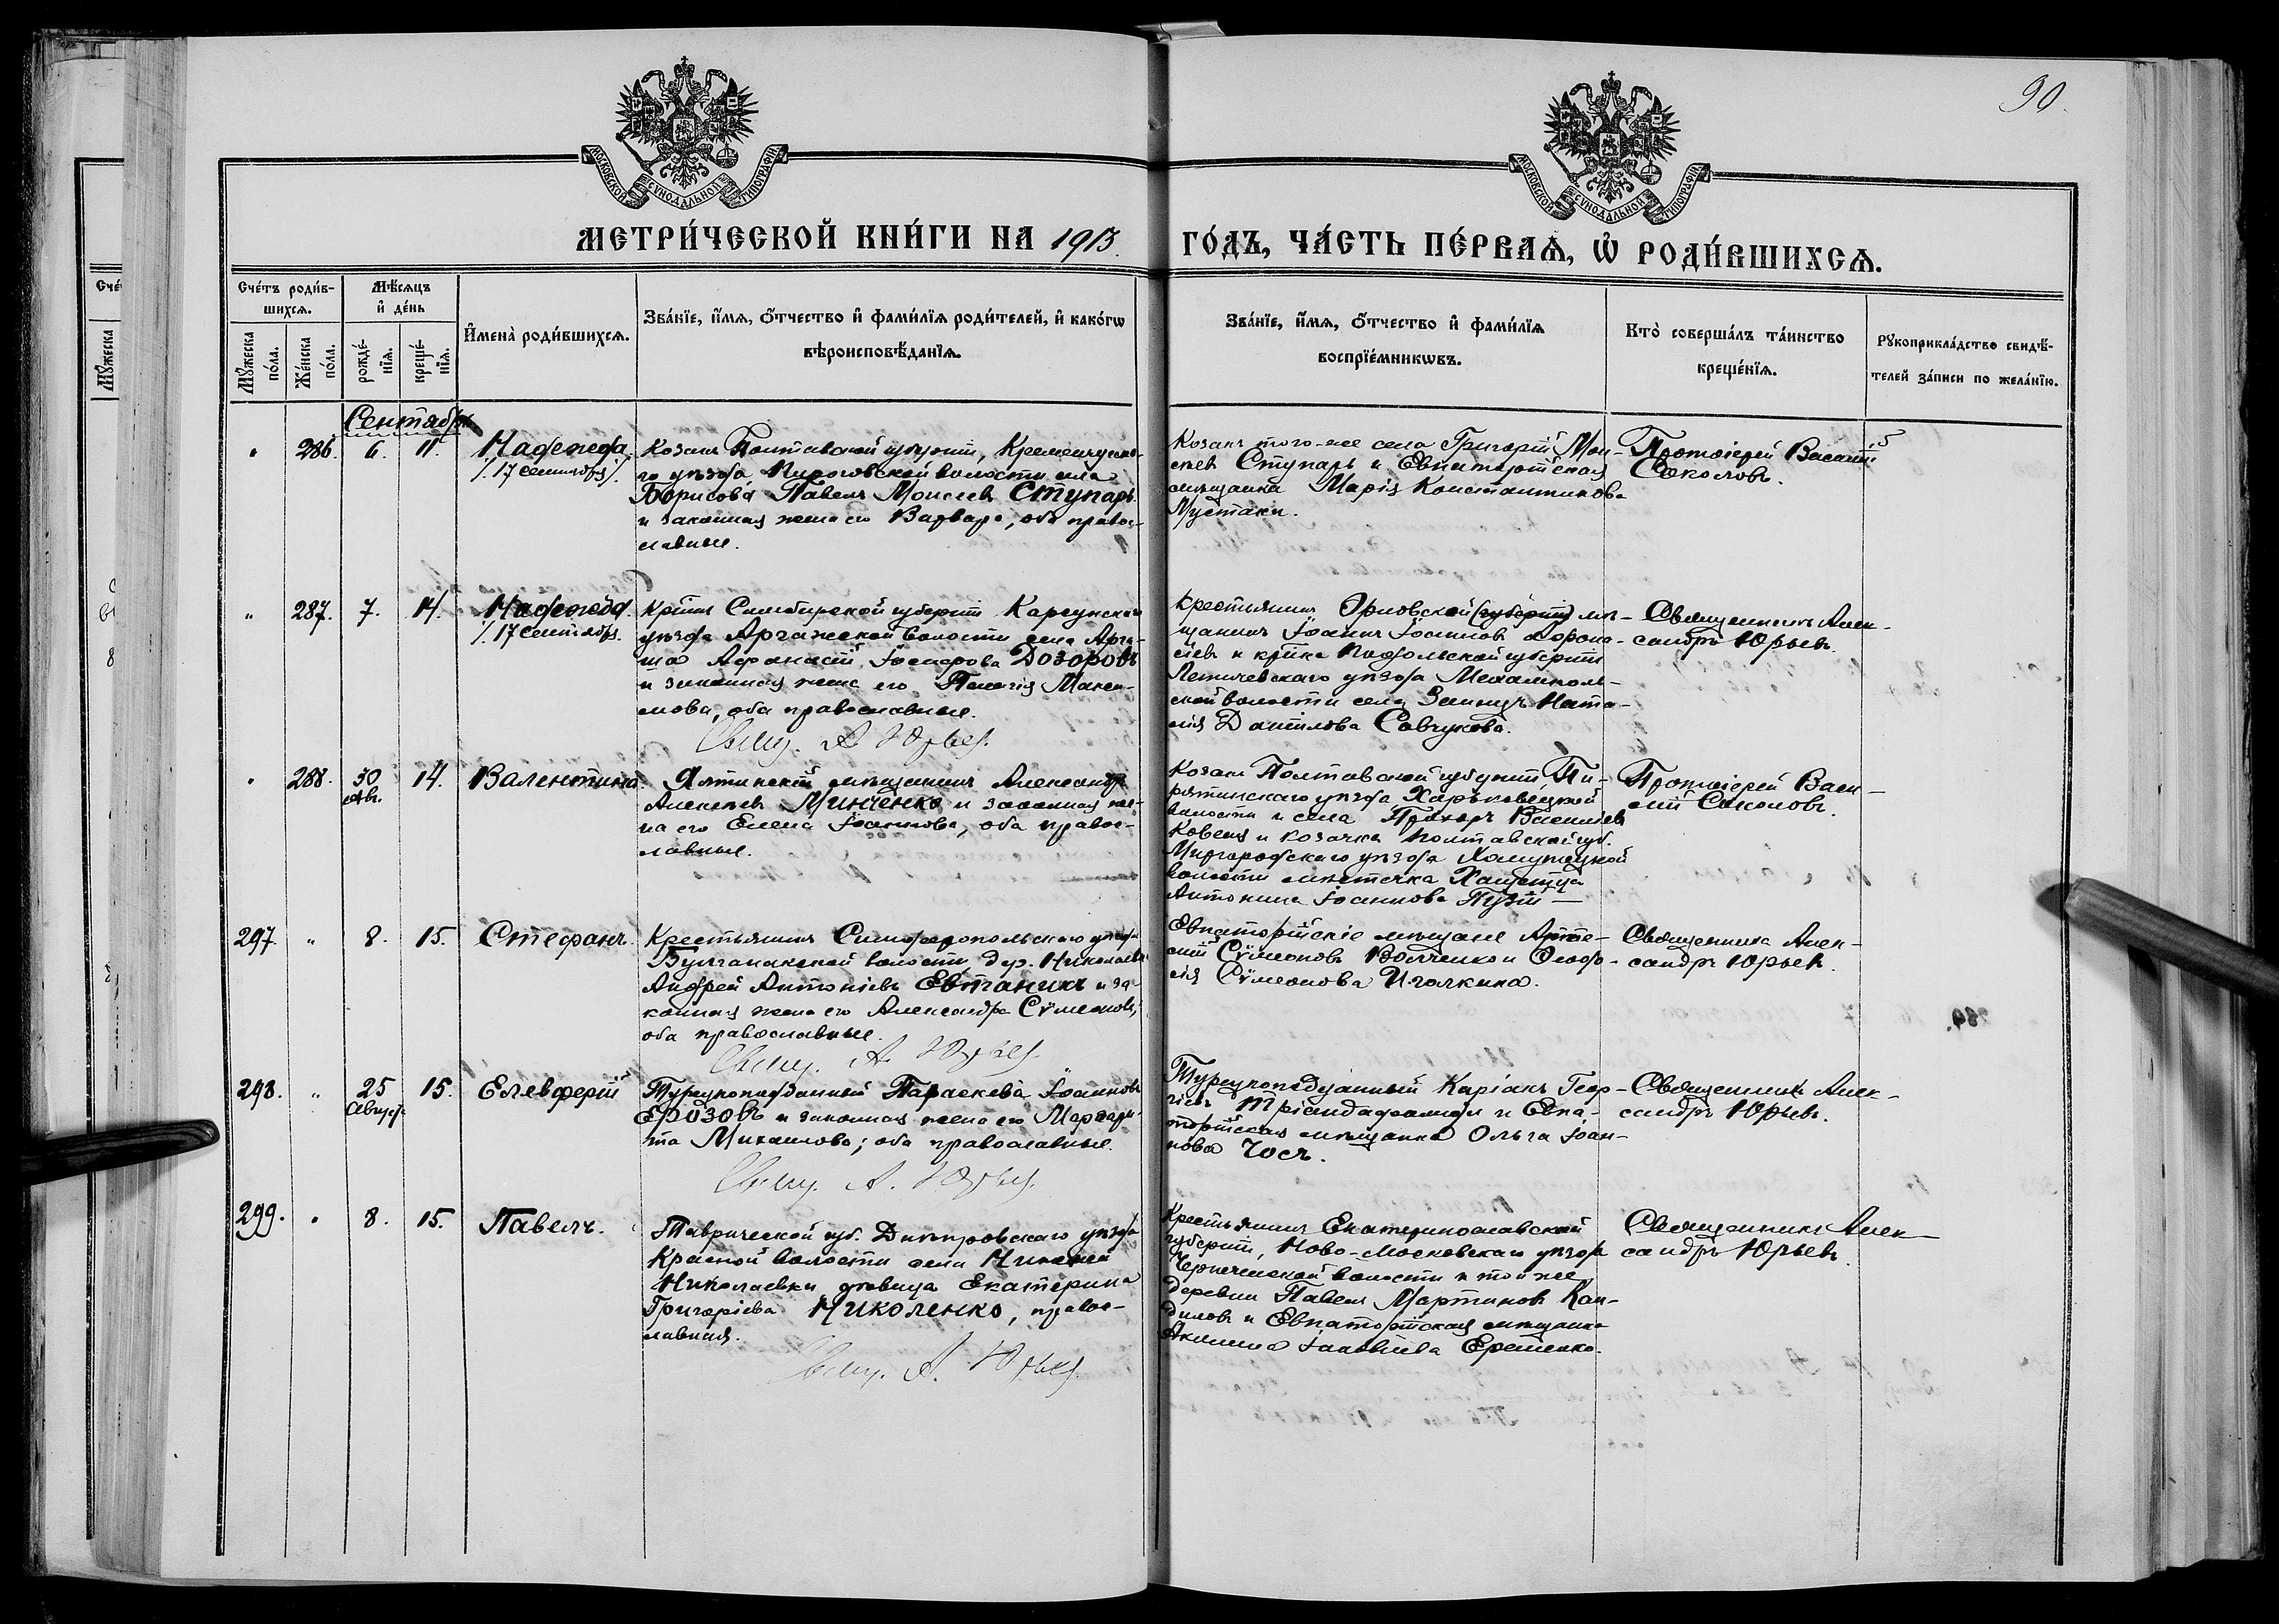 90.
МОСКОВСКОЙ СѴНОДАЛЬНОЙ ТИПОГРАФІИ
МОСКОВСКОЙ СѴНОДАЛЬНОЙ ТИПОГРАФІИ
МЕТРИ́ЧЕСКОЙ КНИ́ГИ НА 1913. ГО́ДЪ, ЧА́СТЬ ПЕ́РВАѦ, Ѡ҆ РОДИ́ВШИХСѦ.
Сче́тъ роди́в-
шихсѧ.
Мꙋ́жеска по́ла.
Же́нска по́ла.
Мѣ́сѧцъ
и҆ де́нь
рожде́-
нїѧ.
креще́-
нїѧ.
И҆мена̀ роди́вшихсѧ.
Зва́нїе, и҆́мѧ, ѻ҆́тчество и҆ фами́лїѧ роди́телей, и҆ како́гѡ
вѣроисповѣ́данїѧ.
Зва́нїе, и҆́мѧ, ѻ҆́тчество и҆ фами́лїѧ
воспрїе́мникѡвъ.
Кто̀ соверша́лъ та́инство
креще́нїѧ.
Рꙋкоприкла́дство свидѣ́-
телей за́писи по жела́нїю.
Сентябрь
" 286. 6. 11. Надежда
/. 17 сентября/.
Козакъ Полтавской губерніи, Кременчугска-
го уѣзда Пироговской волости села
Борисова Павелъ Моисеевъ Ступарь
и законная жена его Варвара, оба правос-
лавные.
Козакъ того-же села Григорій Мои-
сеевъ Ступарь и Евпаторійская
мѣщанка Марія Константинова
Мустаки.
Протоіерей Василій
Соколовъ.
" 287. 7. 14. Надежда.
/. 17 сентября.
Кр-нинъ Симбирской губерніи Карсунскаго
уѣзда Аргашской волости села Арга-
ша Афанасій Дозоровъ
и законная жена его Пелагія Макси-
мова, оба православные.
Свящ. А Юрьев.
Крестьянинъ Орловской (губерніи) мѣ-
щанинъ Іоаннъ Іоанновъ Дорофе-
евъ и кр-нка Подольской губерніи
Летичевскаго уѣзда
ской волости села Ната-
лія Даніилова Савчукова.
Священникъ Алек-
сандръ Юрьевъ.
" 288. 30
авг. 14. Валентина.
Ялтинскій мѣщанинъ Александръ
Алексѣевъ Минченко и законная же-
на его Елена Іоаннова, оба правос-
лавные.
Козакъ Полтавской губерніи Пи-
рятинскаго уѣзда Харьковецкой
волости и села Прохоръ Васильевъ
Ковеня и козачка Полтавской губ.
Миргородскаго уѣзда Хомутецкой
волости мѣстечка Хомутца
Антонина Іоаннова
Протоіерей Васи-
лій Соколовъ.
297. " 8. 15. Стефанъ.
Крестьянинъ Симферопольскаго уѣзда
Булганакской волости дер. Николаевки
Андрей Антоніевъ Евтанихъ и за-
конная жена его Александра Сѵмеонова,
оба православные.
Свящ. А. Юрьев.
Евпаторійскіе мѣщане Арте-
мій Сѵмеоновъ Волченко и Феодо-
сія Сѵмеонова Иголкина.
Священникъ Алек-
сандръ Юрьевъ.
298. " 25
августа 15. Елевферій
Турецкоподданный Параскева Іоанновъ
Ерозовъ и законная жена его Маргари-
та Михаилова; оба православные.
Свящ. А. Юрьев.
Турецкоподданный Киріакъ Геор-
гіевъ Тріандафилиди и Евпа-
торійская мѣщанка Ольга Іоан-
нова Чосъ.
Священникъ Алек-
сандръ Юрьевъ.
299. " 8. 15. Павелъ.
Таврической губ. Днѣпровскаго уѣзда
Красной волости села
Николаевки дѣвица Екатерина
Григоріева Николенко, правос-
лавная.
Свящ. А. Юрьев.
Крестьянинъ Екатеринославской
губерніи, Ново-Московскаго уѣзда
волости и той же
деревни Павелъ Мартиновъ Кан-
диловъ и Евпаторійская мѣщанка
Акилина Іаковлева Ерешенко.
Священникъ Алек-
сандръ Юрьевъ.